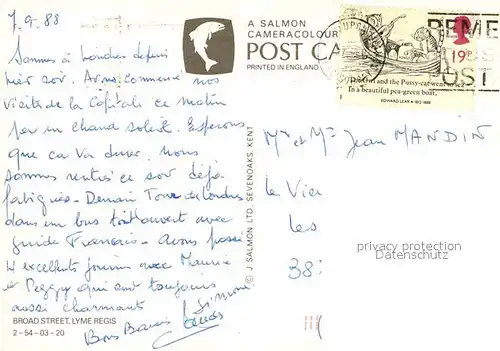 7.9.88
Sommes à Londres depuis
hier soir. Avons commencé nos
visites de la Capitale ce matin
par un chaud soleil. Espérons
que ça va durer. Nous
sommes rentrés ce soir déjà
fatigués - Demain Tour de Londres
dans un bus toit ouvert avec
guide Français - Avons passé
excellentes journées avec Maurice
et Peggy qui sont toujours
aussi charmants
Bons Baisers Simone
A SALMON
CAMERACOLOUR
POST CA
PRINTED IN ENGLAND
© J. SALMON LTD. SEVENOAKS, KENT
BROAD STREET, LYME REGIS
2-54-03-20
REME
19P
ST
and the Pussy-cat went to sea
In a beautiful pea-green boat,
EDWARD LEAR • 1812-1888
Mme et Mr Jean MANDIN
Le
Les
38
privacy protection
Datenschutz